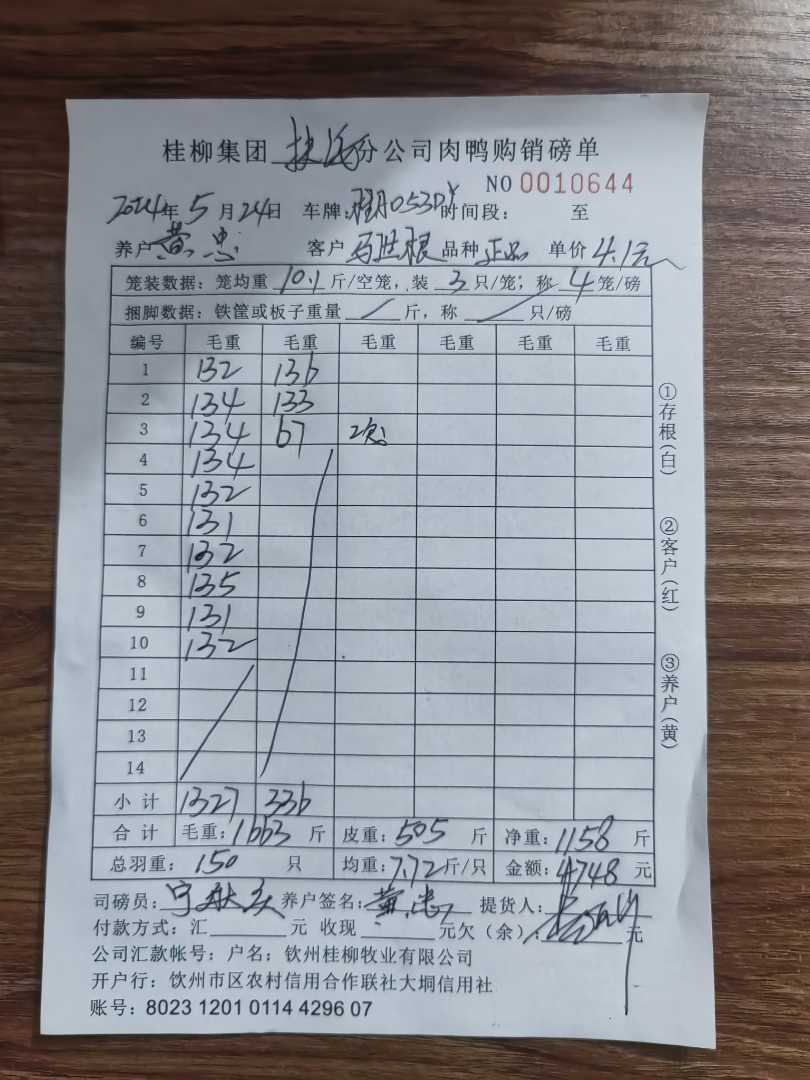 桂柳集团 分公司肉鸭购销磅单
NO 0010644
2024年5月24日 车牌: 053D 时间段: 至
养户 黄忠 客户 根 品种 正品 单价 4.1元
笼装数据: 笼均重 10.1 斤/空笼, 装 3 只/笼; 称 4 笼/磅
捆脚数据: 铁筐或板子重量 / 斤, 称 / 只/磅
编号 毛重 毛重 毛重 毛重 毛重 毛重
1 132 136
2 134 133
3 134 67 2笼
4 134
5 132
6 131
7 132
8 135
9 131
10 132
11
12
13
14
小计 1327 336
合计 毛重: 1663 斤 皮重: 505 斤 净重: 1158 斤
总羽重: 150 只 均重: 7.72 斤/只 金额: 4748 元
司磅员: 养户签名: 黄忠 提货人:
付款方式: 汇 元 收现 元欠(余) 元
公司汇款帐号: 户名: 钦州桂柳牧业有限公司
开户行: 钦州市区农村信用合作联社大垌信用社
账号: 8023 1201 0114 4296 07
①存根(白)
②客户(红)
③养户(黄)